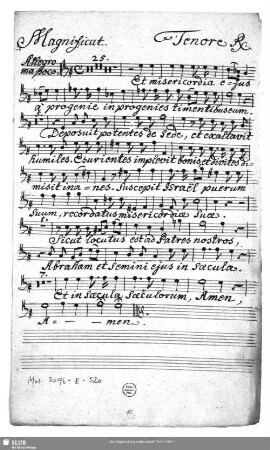 Magnificat. Tenore
Allegro
ma poco. 25.
Et misericordia e-jus
a progenie in progenies timentibus eum.
Deposuit potentes de Sede, et exaltavit
humiles. Esurientes implevit bonis, et divites di-
misit ina=nes. Suscepit Israël puerum
Suum, recordatus misericordiæ Suæ.
Sicut locutus est ad Patres nostros,
Abraham et Semini ejus in Sæcula.
7.
Et in Sæcula Sæculorum, Amen,
A - - men.
Mus. 3096-E-520
SLUB